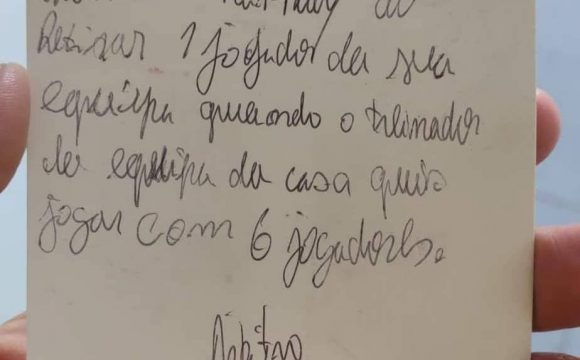 de
Retirar 1 jogador da sua
equipa quando o treinador
da equipa da casa quis
jogar com 6 jogadores.
Árbitro